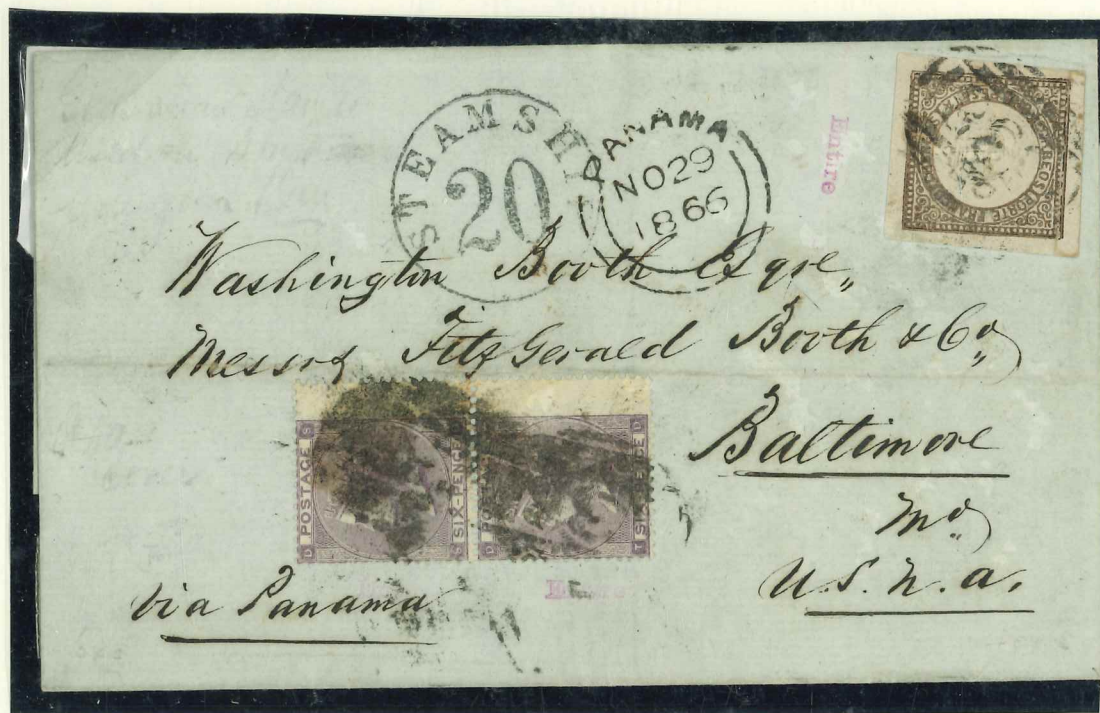 STEAMSHI
20
PANAMA
NO 29
1866
Entire
PORTE
Washington Booth Esqre,,
Messrs FitzGerald Booth & Co,,
Baltimore
Md
U.S.N.a.
D POSTAGE S
S SIX-PENCE
D
T SIX-PENCE D
via Panama